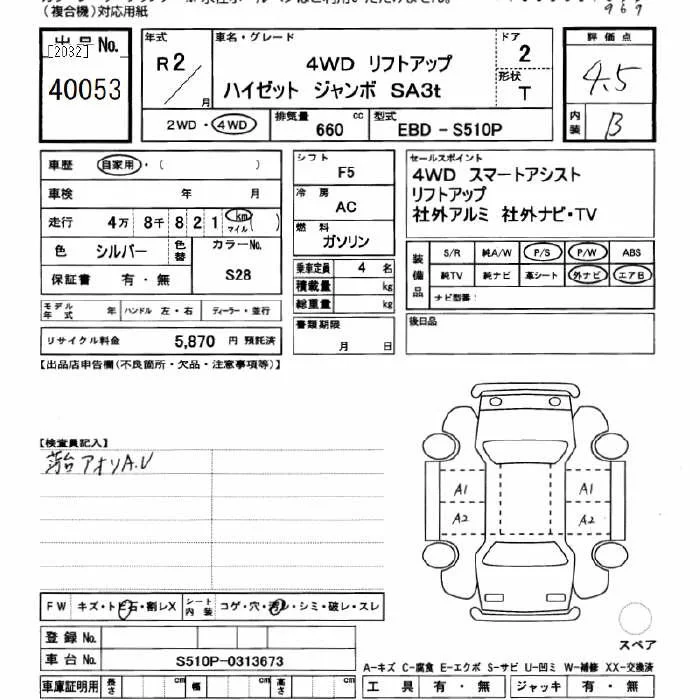 (複合機)対応用紙
967
出品No.
[2032]
40053
年式
R2/
月
車名・グレード
4WD リフトアップ
ハイゼット ジャンボ SA3t
ドア
2
形状
T
評価点
4.5
内装
B
2WD・4WD
排気量
660
cc
型式
EBD-S510P
車歴
自家用・( )
車検
年 月
走行
4万 8千 8 2 1
km
マイル
( )
色
シルバー
色替
カラーNo.
S28
保証書
有・無
モデル年式
年
ハンドル
左・右
ディーラー・並行
リサイクル料金
5,870
円 預託済
シフト
F5
冷房
AC
燃料
ガソリン
乗車定員
4 名
積載量
kg
総重量
kg
書類期限
月 日
セールスポイント
4WD スマートアシスト
リフトアップ
社外アルミ 社外ナビ・TV
装備品
S/R 純A/W P/S P/W ABS
純TV 純ナビ 革シート 外ナビ エアB
ナビ型番:
後日品
【出品店申告欄(不良箇所・欠品・注意事項等)】
【検査員記入】
荷台 アオリA.U
A1 A1
A2 A2
FW
キズ・トビ石・割レX
シート内装
コゲ・穴・汚レ・シミ・破レ・スレ
登録No.
車台No.
S510P-0313673
車庫証明用
長さ
cm
幅
cm
高さ
cm
スペア
A-キズ C-腐食 E-エクボ S-サビ U-凹ミ W-補修 XX-交換済
工具 有・無
ジャッキ 有・無